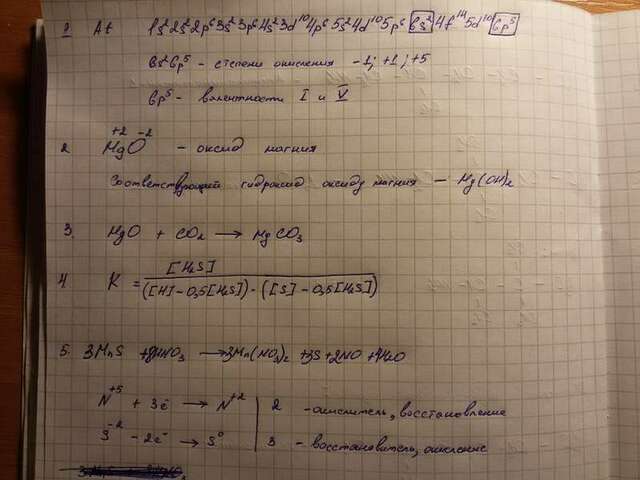 1 At 1s²2s²2p⁶3s²3p⁶4s²3d¹⁰4p⁶5s²4d¹⁰5p⁶6s²4f¹⁴5d¹⁰6p⁵
6s²6p⁵ - степени окисления -1; +1; +5
6p⁵ - валентности I и V
+2 -2
2 MgO - оксид магния
Соответствующий гидроксид оксиду магния - Mg(OH)₂
3. MgO + CO₂ → MgCO₃
4 K = [H₂S] / ([H]-0,5[H₂S])·([S]-0,5[H₂S])
5. 3MnS + 8HNO₃ → 3Mn(NO₃)₂ + 3S + 2NO + 4H₂O
N⁺⁵ + 3ē → N⁺² | 2 - окислитель, восстановление
S⁻² - 2ē → S⁰ | 3 - восстановитель, окисление